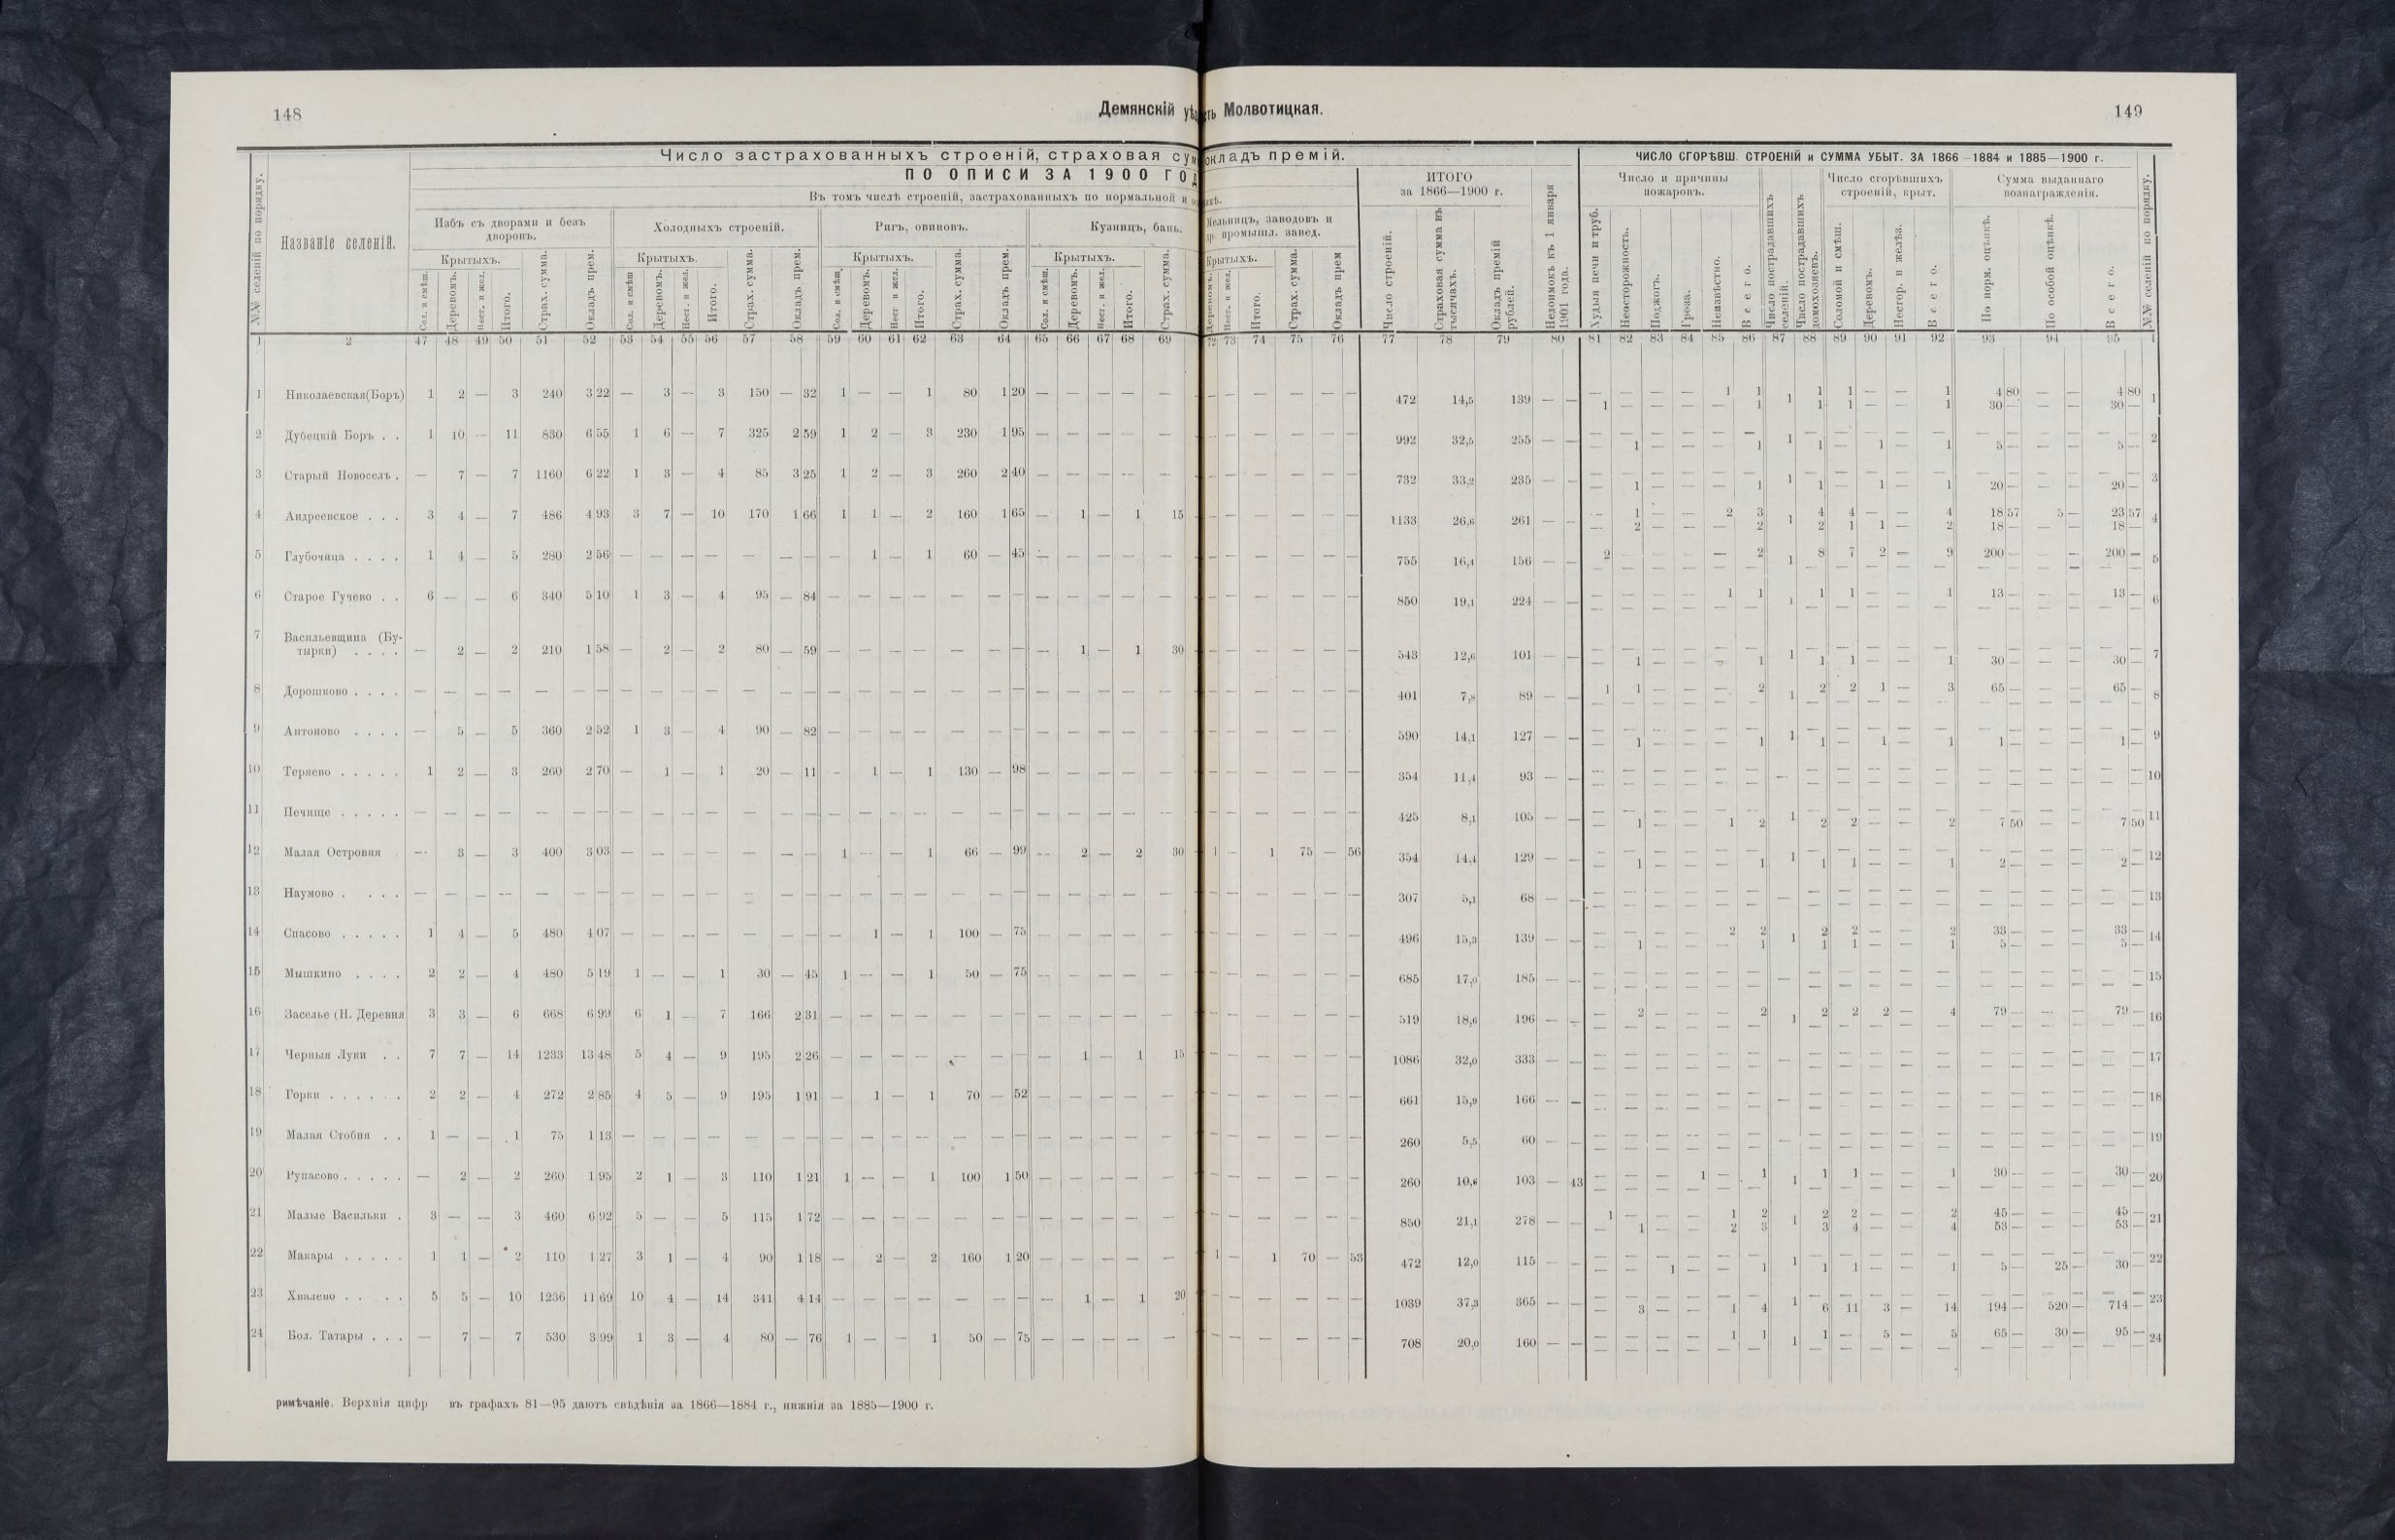 148
Демянскій уѣз
сть Молвотицкая.
149
Число застрахованныхъ строеній, страховая сум
окладъ премій.
ЧИСЛО СГОРѢВШ. СТРОЕНІЙ и СУММА УБЫТ. ЗА 1866—1884 и 1885—1900 г.
ПО ОПИСИ ЗА 1900 ГОД
Въ томъ числѣ строеній, застрахованныхъ по нормальной и
ИТОГО за 1866—1900 г.
Число и причины пожаровъ.
Число сгорѣвшихъ строеній, крыт.
Сумма выданнаго вознагражденія.
№№ селеній по порядку.
Названіе селеній.
Избъ съ дворами и безъ дворовъ.
Холодныхъ строеній.
Ригъ, овиновъ.
Кузницъ, бань.
Мельницъ, заводовъ и пр. промышл. завед.
Крытыхъ. Крытыхъ. Крытыхъ. Крытыхъ. Крытыхъ.
Сол. и смѣш. Деревомъ. Несг. и жел. Итого. Страх. сумма. Окладъ прем.
Сол. и смѣш Деревомъ. Несг. и жел. Итого. Страх. сумма. Окладъ прем.
Сол. и смѣш. Деревомъ. Несг и жел. Итого. Страх. сумма. Окладъ прем.
Сол. и смѣш. Деревомъ. Несг. и жел. Итого. Страх. сумма.
Деревомъ. Несг. и жел. Итого. Страх. сумма. Окладъ прем
Число строеній. Страховая сумма въ тысячахъ. Окладъ премій рублей. Недоимокъ къ 1 января 1901 года.
Худыя печи и труб. Неосторожность. Поджогъ. Гроза. Неизвѣстно. Всего.
Число пострадавшихъ селеній. Число пострадавшихъ домохозяевъ.
Соломой и смѣш. Деревомъ. Несгор. и желѣз. Всего.
По норм. оцѣнкѣ. По особой оцѣнкѣ. Всего. №№ селеній по порядку.
1 2 47 48 49 50 51 52 53 54 55 56 57 58 59 60 61 62 63 64 65 66 67 68 69 72 73 74 75 76 77 78 79 80 81 82 83 84 85 86 87 88 89 90 91 92 93 94 95 1
1 Николаевская(Боръ) 1 2 — 3 240 3 22 — 3 — 3 150 — 32 1 — — 1 80 1 20 — — — — — — — — — — 472 14,5 139 — —
— — — — 1 1 1 1 1 — — 1 4 80 — — 4 80 1
1 — — — — 1 1 1 — — 1 30 — — — 30 —
2 Дубецкій Боръ . . 1 10 — 11 830 6 55 1 6 — 7 325 2 59 1 2 — 3 230 1 95 — — — — — — — — — — 992 32,5 255 — —
— 1 — — — 1 1 1 — 1 — 1 5 — — — 5 — 2
3 Старый Новоселъ . — 7 — 7 1160 6 22 1 3 — 4 85 3 25 1 2 — 3 260 2 40 — — — — — — — — — — 732 33,2 235 — —
— 1 — — — 1 1 1 — 1 — 1 20 — — — 20 — 3
4 Андреевское . . . 3 4 — 7 486 4 93 3 7 — 10 170 1 66 1 1 — 2 160 1 65 — 1 — 1 15 — — — — — 1133 26,6 261 — —
— 1 — — 2 3 1 4 4 — — 4 18 57 5 — 23 57 4
— 2 — — — 2 2 1 1 — 2 18 — — — 18 —
5 Глубочица . . . . 1 4 — 5 280 2 56 — — — — — — — — 1 — 1 60 — 45 — — — — — — — — — — 755 16,4 156 — —
2 — — — — 2 1 8 7 2 — 9 200 — — — 200 — 5
6 Старое Гучево . . 6 — — 6 340 5 10 1 3 — 4 95 — 84 — — — — — — — — — — — — — — — — 850 19,1 224 — —
— — — — 1 1 1 1 1 — — 1 13 — — — 13 — 6
7 Васильевщина (Бу-
тырки) . . . . — 2 — 2 210 1 58 — 2 — 2 80 — 59 — — — — — — — 1 — 1 30 — — — — — 543 12,6 101 — —
— 1 — — — 1 1 1 1 — — 1 30 — — — 30 — 7
8 Дорошково . . . . — — — — — — — — — — — — — — — — — — — — — — — — — — — — 401 7,8 89 — —
1 1 — — — 2 1 2 2 1 — 3 65 — — — 65 — 8
9 Антоново . . . . — 5 — 5 360 2 52 1 3 — 4 90 — 82 — — — — — — — — — — — — — — — — 590 14,1 127 — —
— 1 — — — 1 1 1 — 1 — 1 1 — — — 1 — 9
10 Теряево . . . . . 1 2 — 3 260 2 70 — 1 — 1 20 — 11 — 1 — 1 130 — 98 — — — — — — — — — — 354 11,4 93 — — 10
11 Печище . . . . . — — — — — — — — — — — — — — — — — — — — — — — — — — — — 425 8,1 105 — —
— 1 — — 1 2 1 2 2 — — 2 7 50 — — 7 50 11
12 Малая Островня — 3 — 3 400 3 03 — — — — — — — 1 — — 1 66 — 99 — 2 — 2 30 1 — 1 75 — 56 354 14,4 129 — —
— 1 — — — 1 1 1 1 — — 1 2 — — — 2 — 12
13 Наумово . . . . — — — — — — — — — — — — — — — — — — — — — — — — — — — — 307 5,1 68 — — 13
14 Спасово . . . . . 1 4 — 5 480 4 07 — — — — — — — — 1 — 1 100 — 75 — — — — — — — — — — 496 15,3 139 — —
— — — — 2 2 1 2 2 — — 2 33 — — — 33 — 14
— 1 — — — 1 1 1 — — 1 5 — — — 5 —
15 Мышкино . . . . 2 2 — 4 480 5 19 1 — — 1 30 — 45 1 — — 1 50 — 75 — — — — — — — — — — 685 17,0 185 — — 15
16 Заселье (Н. Деревня 3 3 — 6 668 6 99 6 1 — 7 166 2 31 — — — — — — — — — — — — — — — — 519 18,6 196 — —
— 2 — — — 2 1 2 2 2 — 4 79 — — — 79 — 16
17 Черныя Луки . . 7 7 — 14 1233 13 48 5 4 — 9 195 2 26 — — — — — — — 1 — 1 15 — — — — — 1086 32,0 333 — — 17
18 Горки . . . . . . 2 2 — 4 272 2 85 4 5 — 9 195 1 91 — 1 — 1 70 — 52 — — — — — — — — — — 661 15,9 166 — — 18
19 Малая Стобня . . 1 — — 1 75 1 13 — — — — — — — — — — — — — — — — — — — — — — — 260 5,5 60 — — 19
20 Рупасово . . . . . — 2 — 2 260 1 95 2 1 — 3 110 1 21 1 — — 1 100 1 50 — — — — — — — — — — 260 10,6 103 — 43
— — — 1 — 1 1 1 1 — — 1 30 — — — 30 — 20
21 Малые Васильки . 3 — — 3 460 6 92 5 — — 5 115 1 72 — — — — — — — — — — — — — — — — 850 21,1 278 — —
1 — — — 1 2 1 2 2 — — 2 45 — — — 45 — 21
— 1 — — 2 3 3 4 — — 4 53 — — — 53 —
22 Макары . . . . . 1 1 — 2 110 1 27 3 1 — 4 90 1 18 — 2 — 2 160 1 20 — — — — — 1 — 1 70 — 53 472 12,0 115 — —
— — 1 — — 1 1 1 1 — — 1 5 — 25 — 30 — 22
23 Хвалево . . . . 5 5 — 10 1236 11 69 10 4 — 14 341 4 14 — — — — — — — 1 — 1 20 — — — — — 1039 37,3 365 — —
— 3 — — 1 4 1 6 11 3 — 14 194 — 520 — 714 — 23
24 Бол. Татары . . . — 7 — 7 530 3 99 1 3 — 4 80 — 76 1 — — 1 50 — 75 — — — — — — — — — — 708 20,0 160 — —
— — — — 1 1 1 1 — 5 — 5 65 — 30 — 95 — 24
римѣчаніе. Верхнія цифр въ графахъ 81—95 даютъ свѣдѣнія за 1866—1884 г., нижнія за 1885—1900 г.